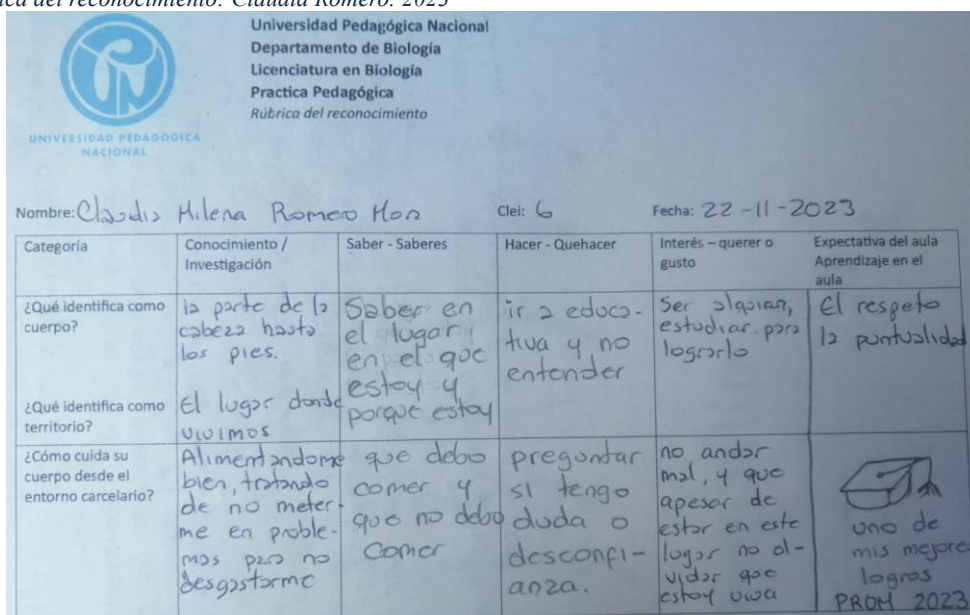 ica del reconocimiento. Claudia Romero. 2023
Universidad Pedagógica Nacional
Departamento de Biología
Licenciatura en Biología
Practica Pedagógica
Rúbrica del reconocimiento
UNIVERSIDAD PEDAGÓGICA
NACIONAL
Nombre: Claudia Milena Romero Clei: 6 Fecha: 22-11-2023
Categoría
Conocimiento /
Investigación
Saber - Saberes
Hacer - Quehacer
Interés – querer o
gusto
Expectativa del aula
Aprendizaje en el
aula
¿Qué identifica como
cuerpo?
¿Qué identifica como
territorio?
la parte de la
cabeza hasta
los pies.
El lugar donde
vivimos
Saber en
el lugar
en el que
estoy y
porque estoy
ir a educa-
tiva y no
entender
Ser alguian,
estudiar para
lograrlo
El respeto
la puntualidad
¿Cómo cuida su
cuerpo desde el
entorno carcelario?
Alimentandome
bien, tratando
de no meter-
me en proble-
mas para no
desgastarme
que debo
comer y
que no debo
comer
preguntar
si tengo
duda o
desconfi-
anza.
no andar
mal, y que
apesar de
estar en este
lugar no ol-
vidar que
estoy viva
uno de
mis mejores
logros
PROM 2023